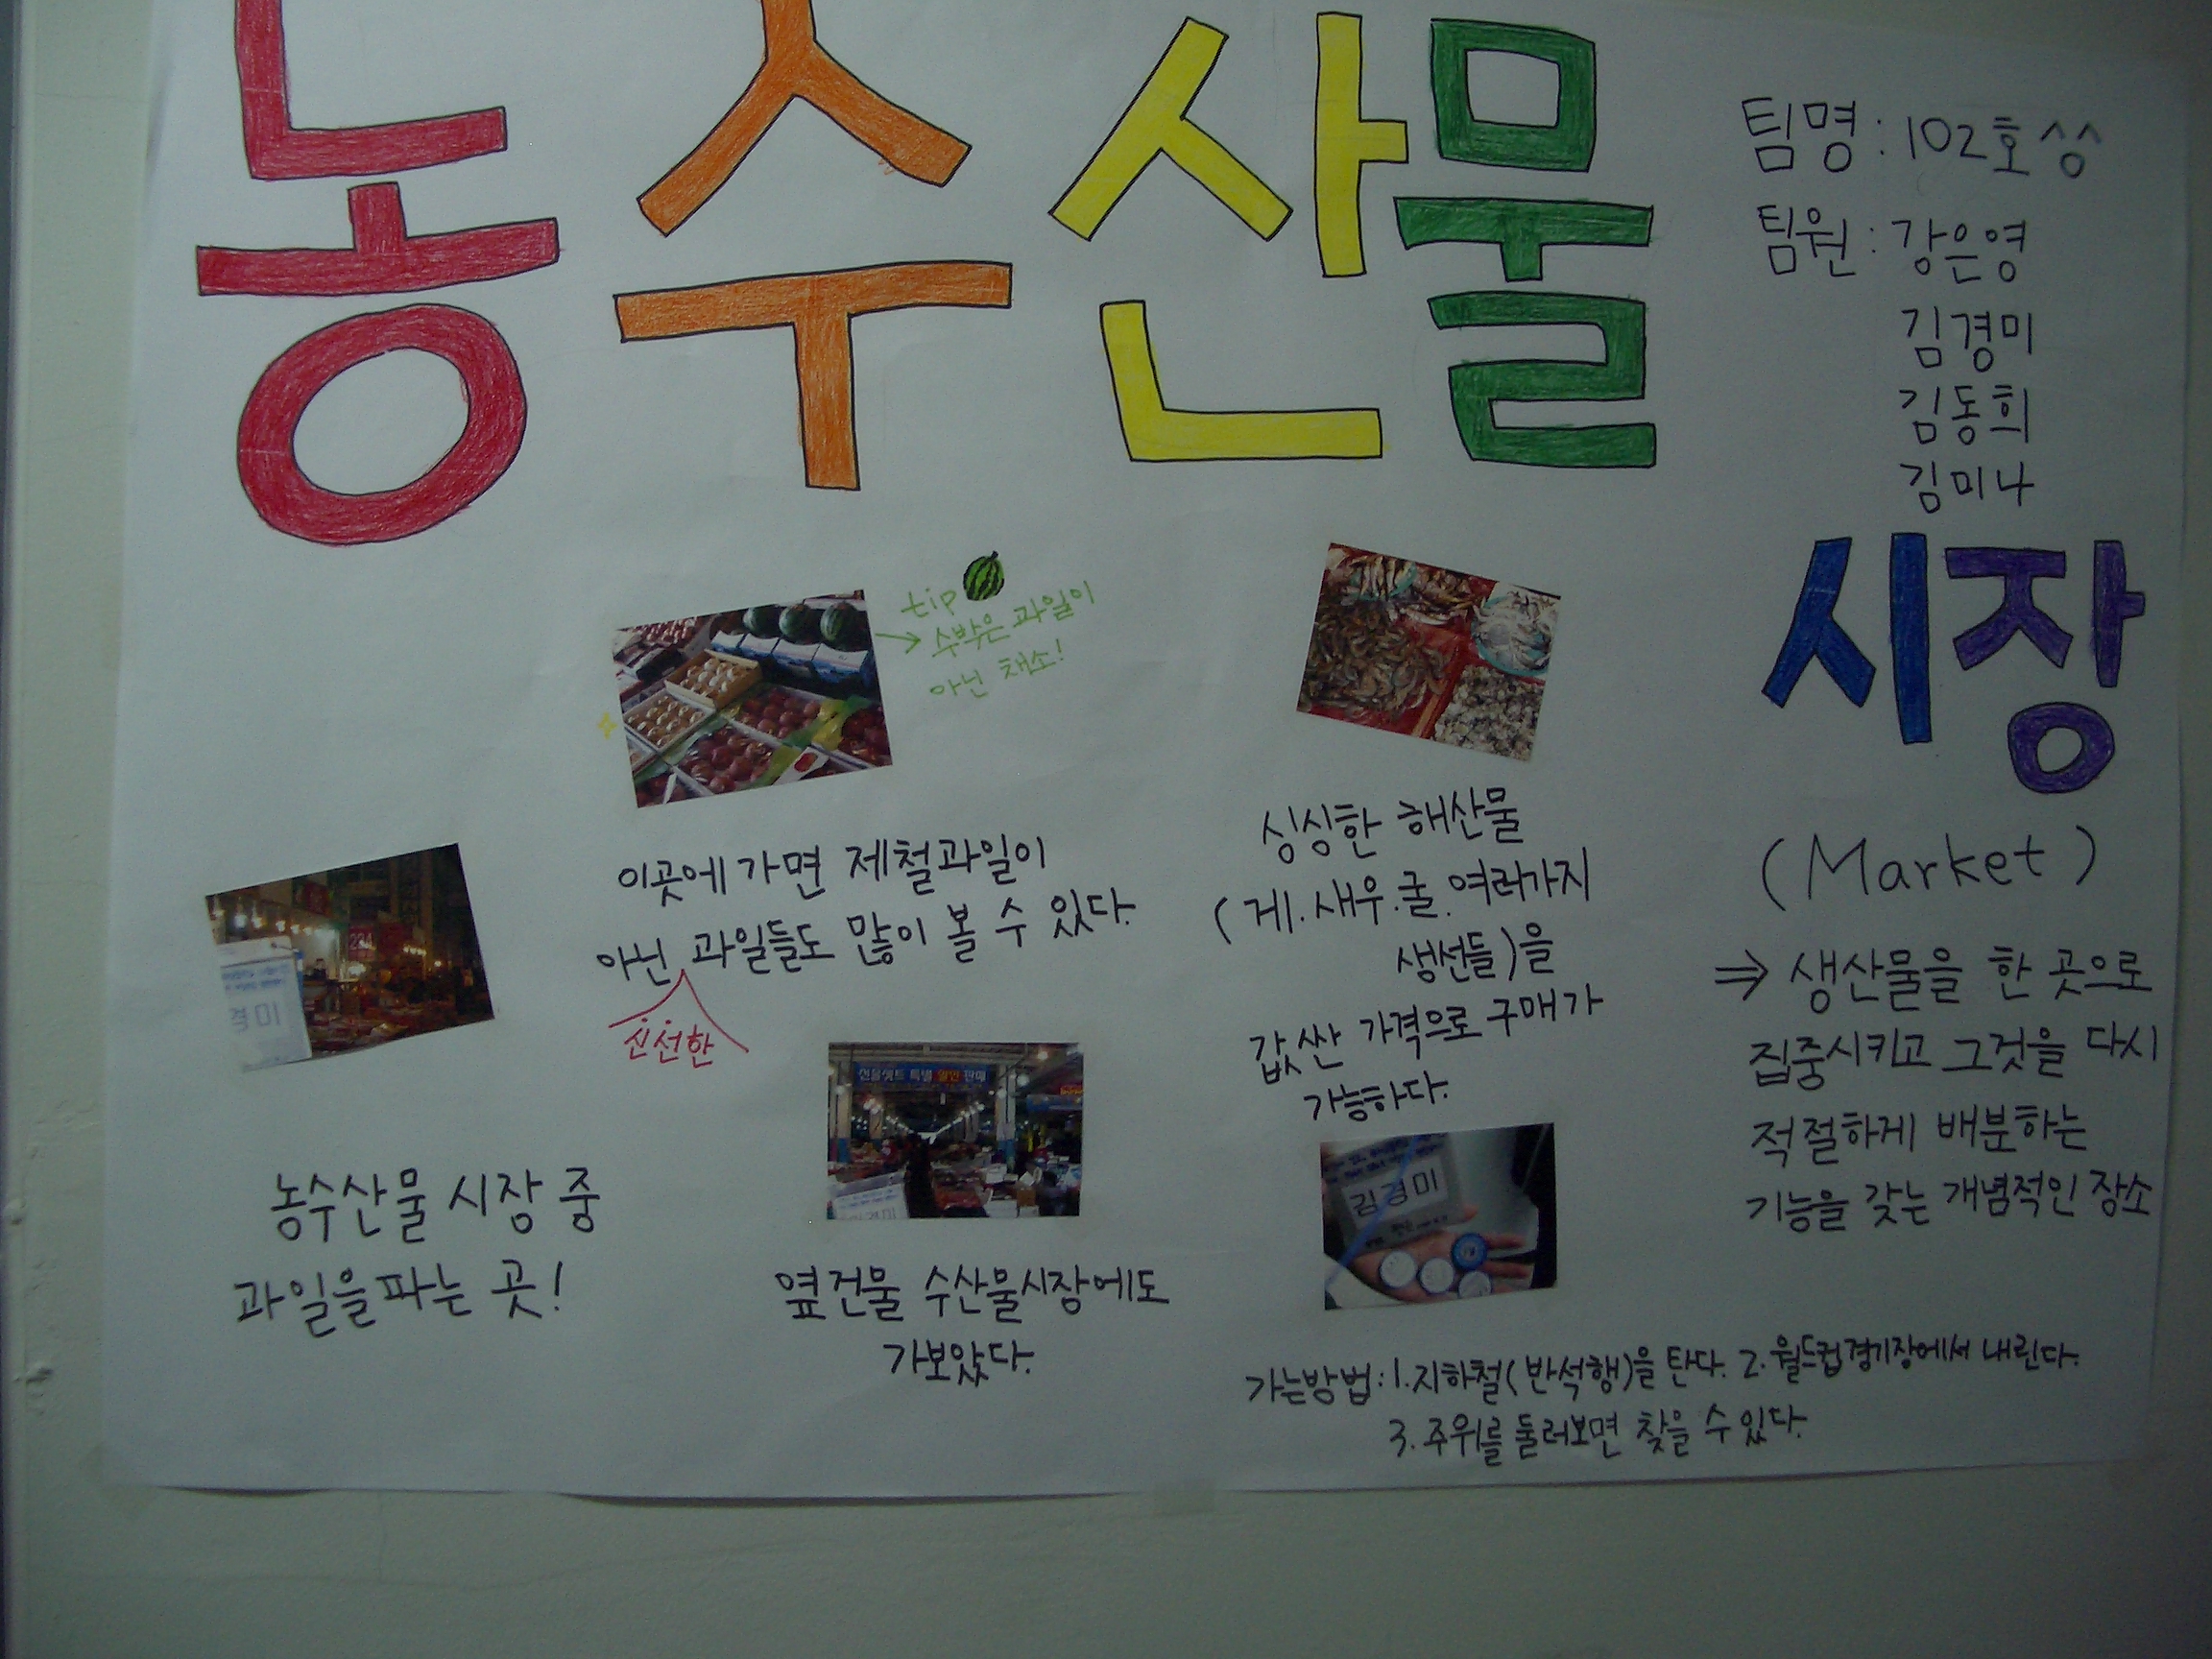 농수산물
팀명 : 102호 ^^
팀원 : 강은영
김경미
김동희
김미나
시장
(Market)
⇒ 생산물을 한 곳으로
집중시키고 그것을 다시
적절하게 배분하는
기능을 갖는 개념적인 장소
tip
→ 수박은 과일이
아닌 채소!
이곳에 가면 제철과일이
아닌 과일들도 많이 볼 수 있다.
신선한
싱싱한 해산물
(게.새우.굴.여러가지
생선들)을
값싼 가격으로 구매가
가능하다.
224
경미
농수산물 시장 중
과일을파는 곳!
선물셋트 특별 할인 판매
옆건물 수산물시장에도
가보았다.
김경미
가는방법 : 1.지하철(반석행)을 탄다. 2.월드컵경기장에서 내린다.
3. 주위를 둘러보면 찾을 수 있다.